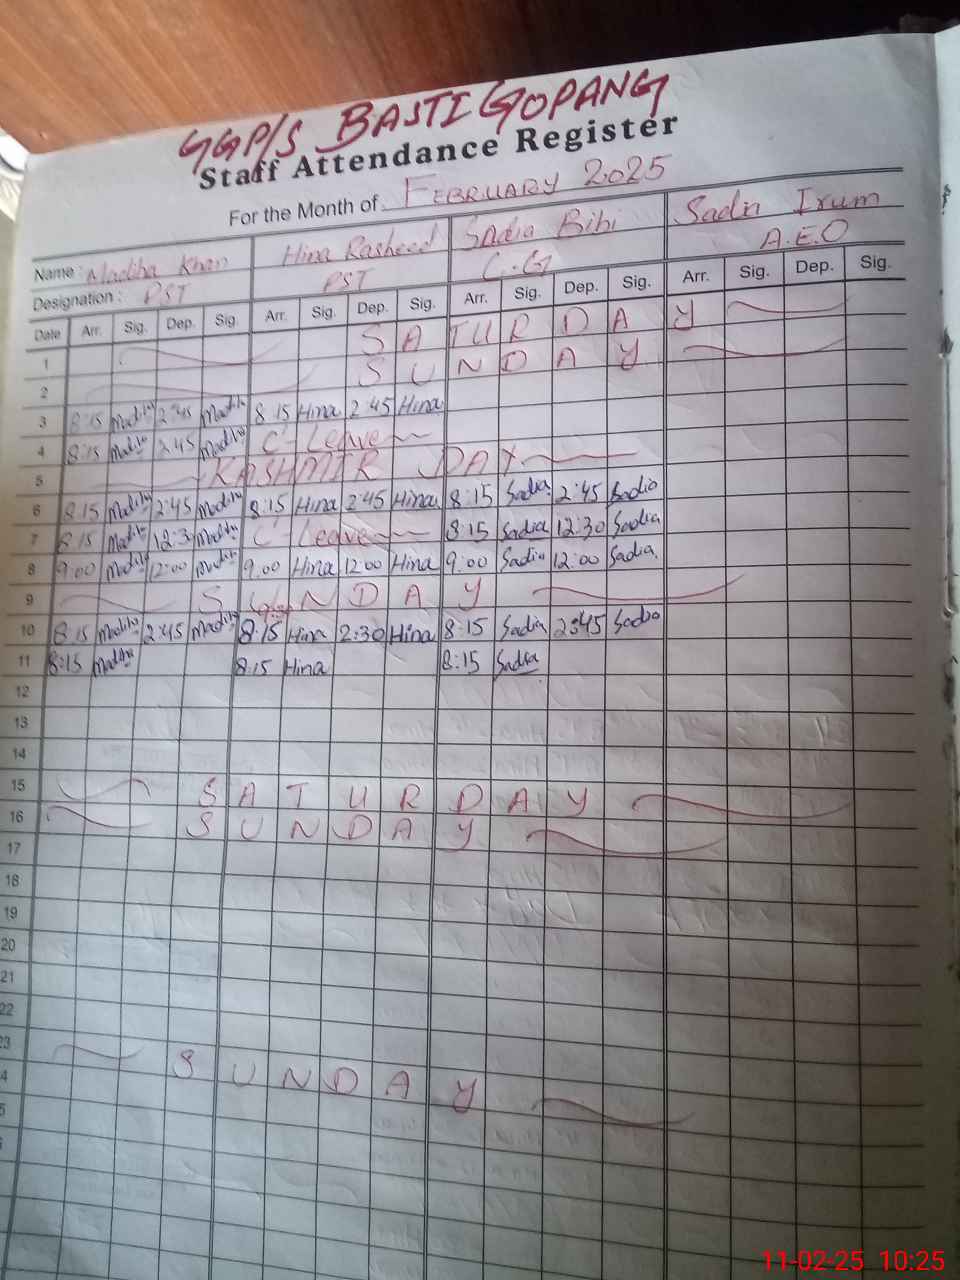 GGP/S BASTI GOPANG
Staff Attendance Register
For the Month of FEBRUARY 2025
Name : Madiha Khan Hina Rasheed Sadia Bibi Sadia Irum
Designation : PST PST C.G A.E.O
Date Arr. Sig. Dep. Sig. Arr. Sig. Dep. Sig. Arr. Sig. Dep. Sig. Arr. Sig. Dep. Sig.
1 SATURDAY
2 SUNDAY
3 8:15 Madiha 2:45 Madiha 8:15 Hina 2:45 Hina
4 8:15 Madiha 2:45 Madiha C-Leave
5 KASHMIR DAY
6 8:15 Madiha 2:45 Madiha 8:15 Hina 2:45 Hina 8:15 Sadia 2:45 Sadia
7 8:15 Madiha 12:3 Madiha C-Leave 8:15 Sadia 12:30 Sadia
8 9:00 Madiha 12:00 Madiha 9:00 Hina 12:00 Hina 9:00 Sadia 12:00 Sadia
9 SUNDAY
10 8:15 Madiha 2:45 Madiha 8:15 Hina 2:30 Hina 8:15 Sadia 2:45 Sadia
11 8:15 Madiha 8:15 Hina 8:15 Sadia
12
13
14
15 SATURDAY
16 SUNDAY
17
18
19
20
21
22
23 SUNDAY
4
5
11-02-25 10:25